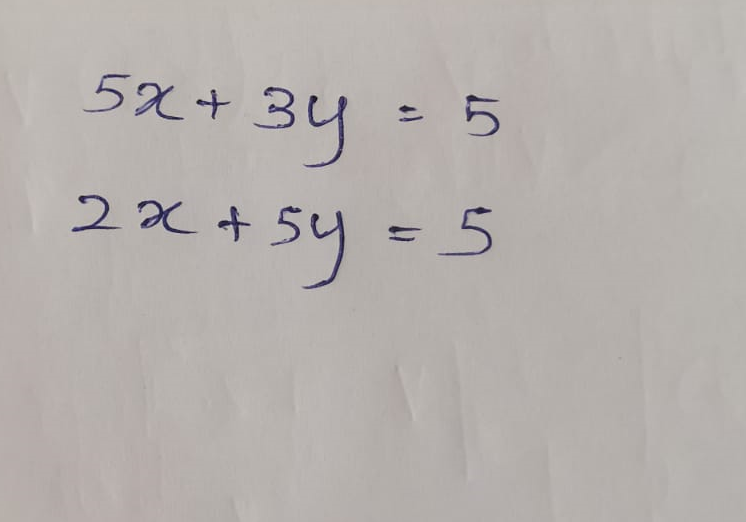 5x + 3y = 5
2x + 5y = 5